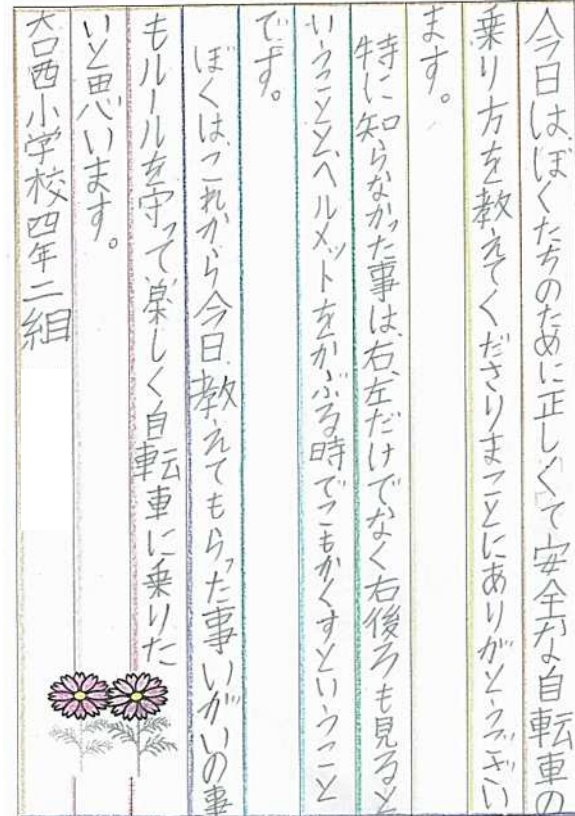 今日は、ぼくたちのために正しくて安全な自転車の
乗り方を教えてくださりまことにありがとうござい
ます。
特に知らなかった事は、右、左だけでなく右後ろも見ると
いうことと、ヘルメットをかぶる時でこもかくすということ
です。
ぼくは、これから今日、教えてもらった事いがいの事
もルールを守って楽しく自転車に乗りた
いと思います。
大口西小学校四年二組